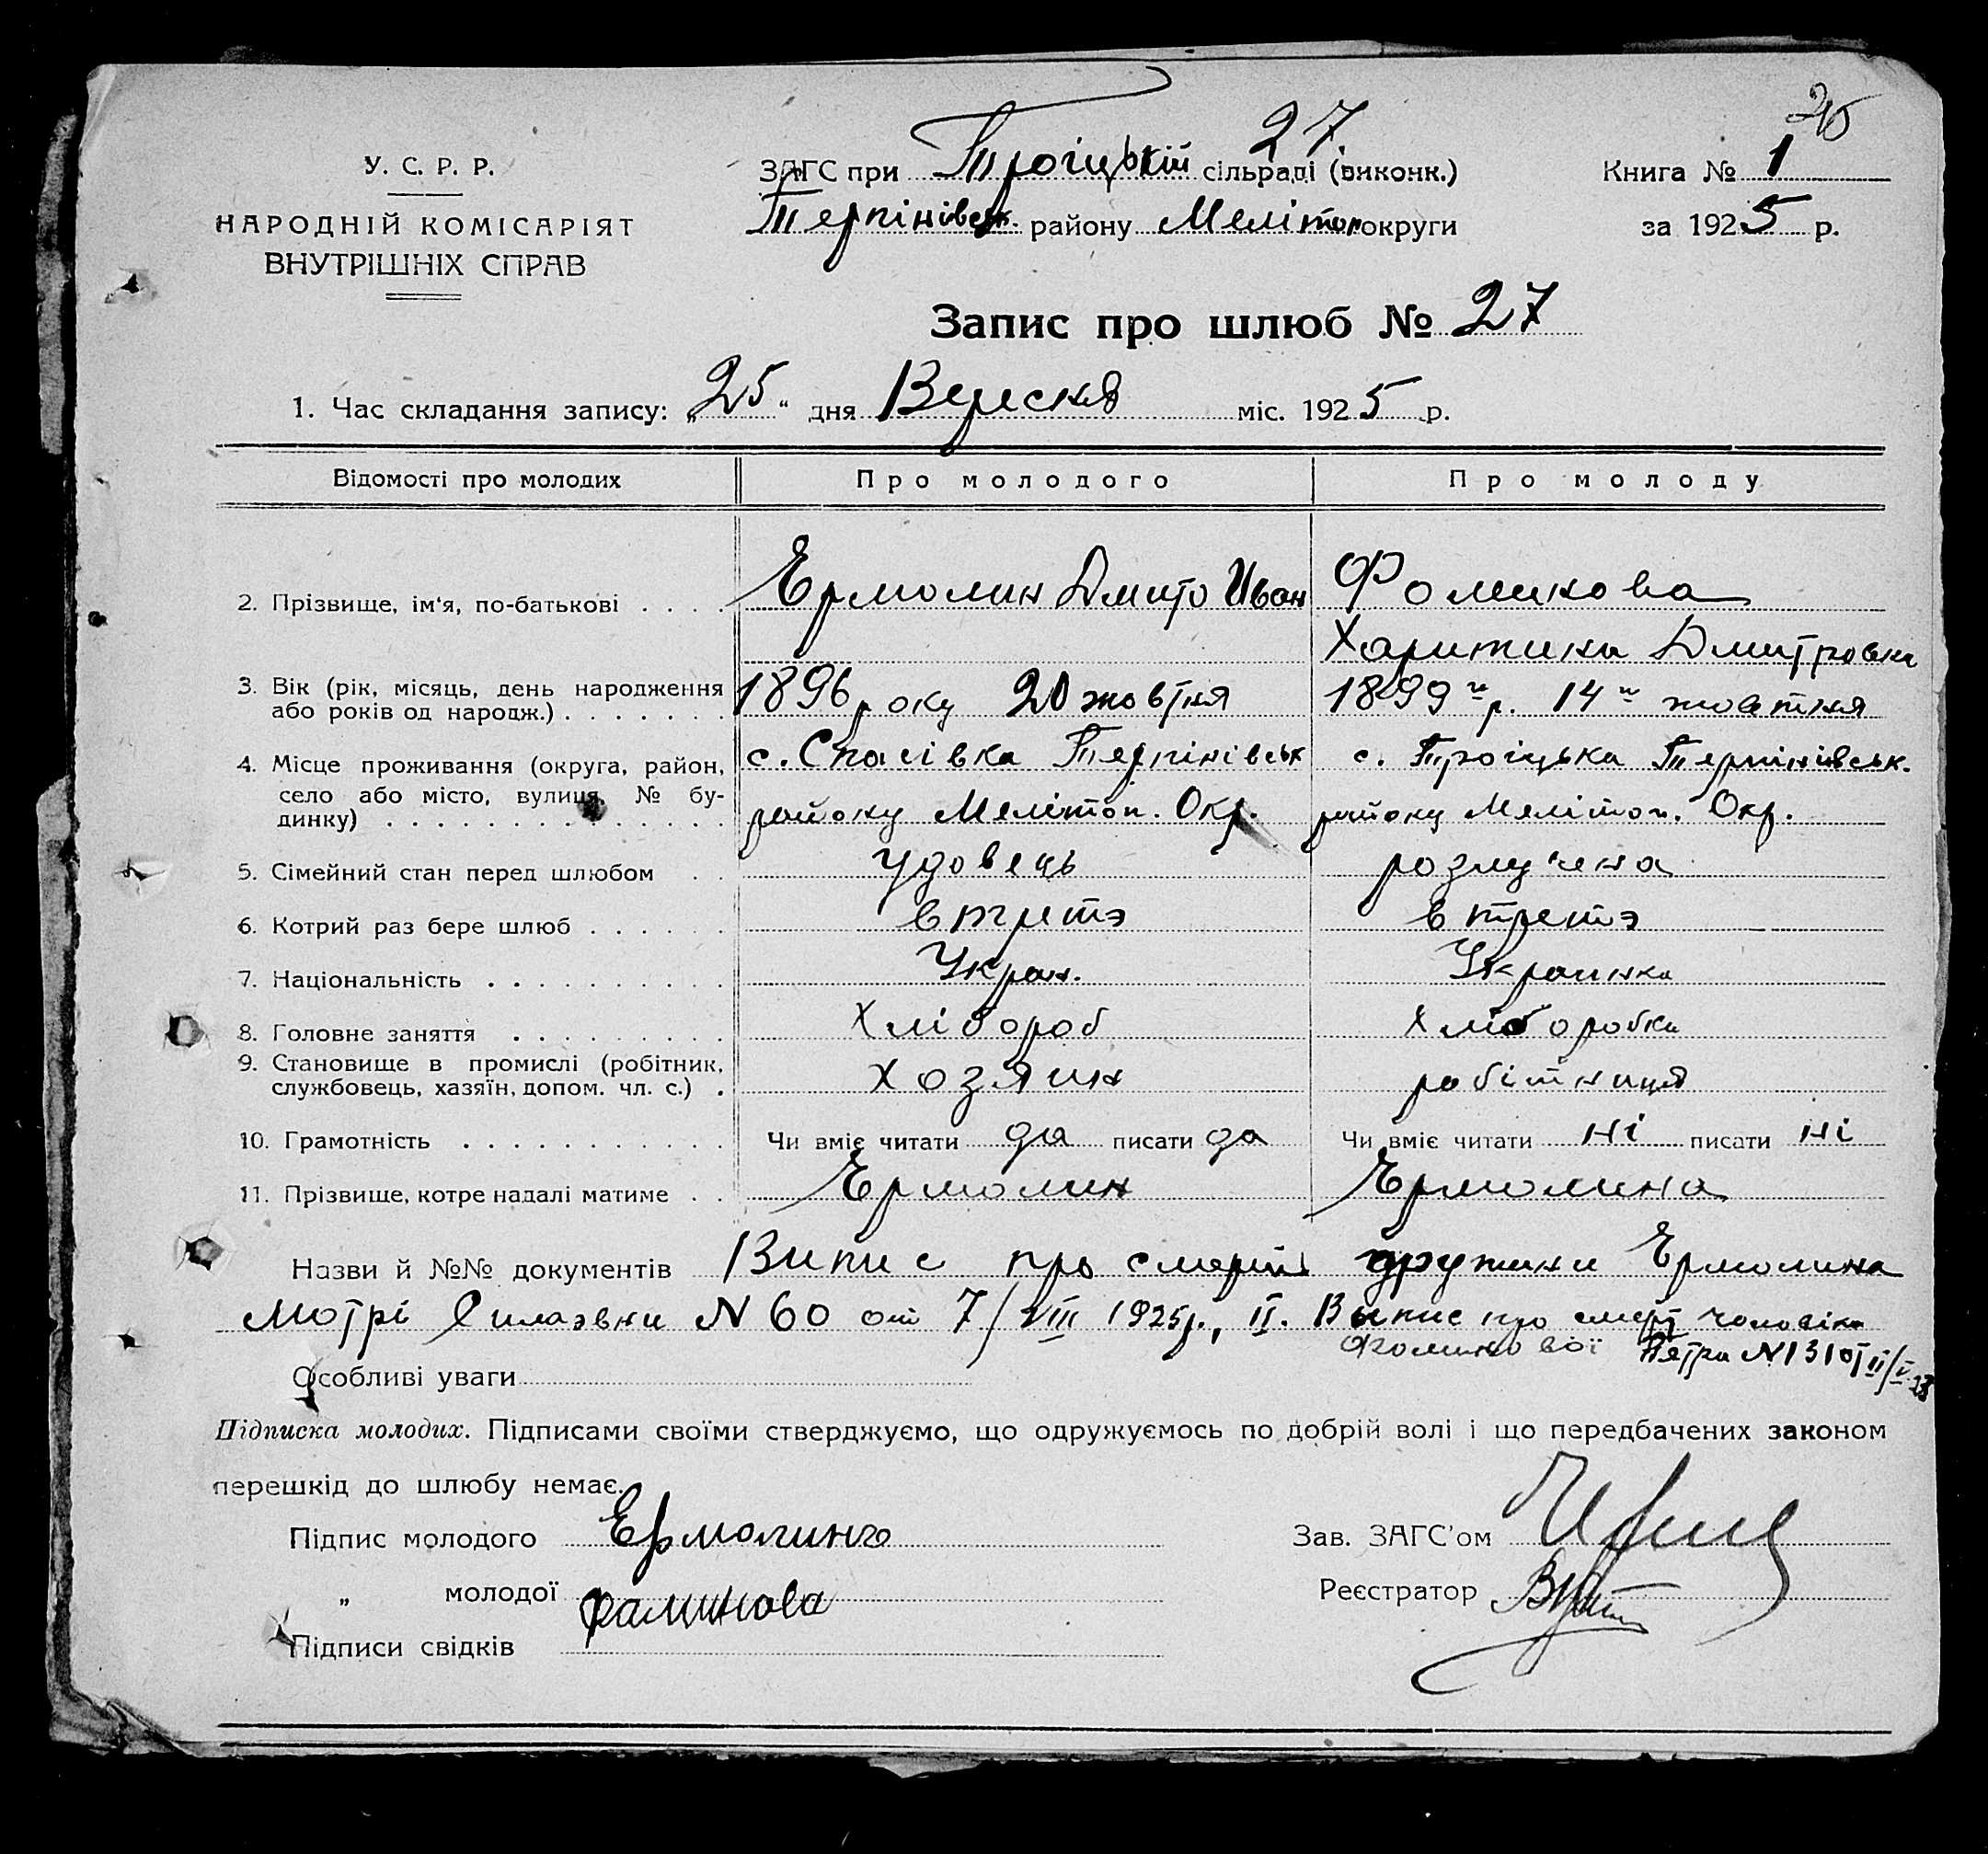 26
27.
У. С. Р. Р.
ЗАГС при Троіцькій сільраді (виконк.)
Книга № 1
НАРОДНІЙ КОМІСАРІЯТ
Терпінівськ. району Мелітоп округи
за 1925 р.
ВНУТРІШНІХ СПРАВ
Запис про шлюб № 27
1. Час складання запису: „25“ дня Вересня міс. 1925 р.
Відомості про молодих
Про молодого
Про молоду
2. Прізвище, ім'я, по-батькові . . . .
Ермолин Дмитро Иван
Фоминова
Харитина Дмитровна
3. Вік (рік, місяць, день народження
або років од народж.) . . . . . . .
1896 року 20 жовтня
1899 р. 14 жовтня
4. Місце проживання (округа, район,
село або місто, вулиця, № бу-
динку) . . . . . . . . . . . . . .
с. Спасівка Терпінівськ
району Мелітоп. Окр.
с. Троіцька Терпінівськ.
району Мелітоп. Окр.
5. Сімейний стан перед шлюбом . .
удовець
розлучена
6. Котрий раз бере шлюб . . . . . .
втретэ
втретэ
7. Національність . . . . . . . . . .
Укран.
Украинка
8. Головне заняття . . . . . . . . .
Хлібороб
Хліборобка
9. Становище в промислі (робітник,
службовець, хазяїн, допом. чл. с.) .
Хозяин
робітниця
10. Грамотність . . . . . . . . . . .
Чи вміє читати да писати да
Чи вміє читати ні писати ні
11. Прізвище, котре надалі матиме . .
Ермолин
Ермолина
Назви й №№ документів Випис про смерть дружини Ермолина
Мотрі N 60 от 7/VIII 1925р., II. Выпис про смерт чоловіка
Фоминовоі Петра N 13
Особливі уваги
Підписка молодих. Підписами своїми стверджуємо, що одружуємось по добрій волі і що передбачених законом
перешкід до шлюбу немає.
Підпис молодого Ермолинъ
Зав. ЗАГС'ом
„ молодої Фаминова
Реєстратор
Підписи свідків